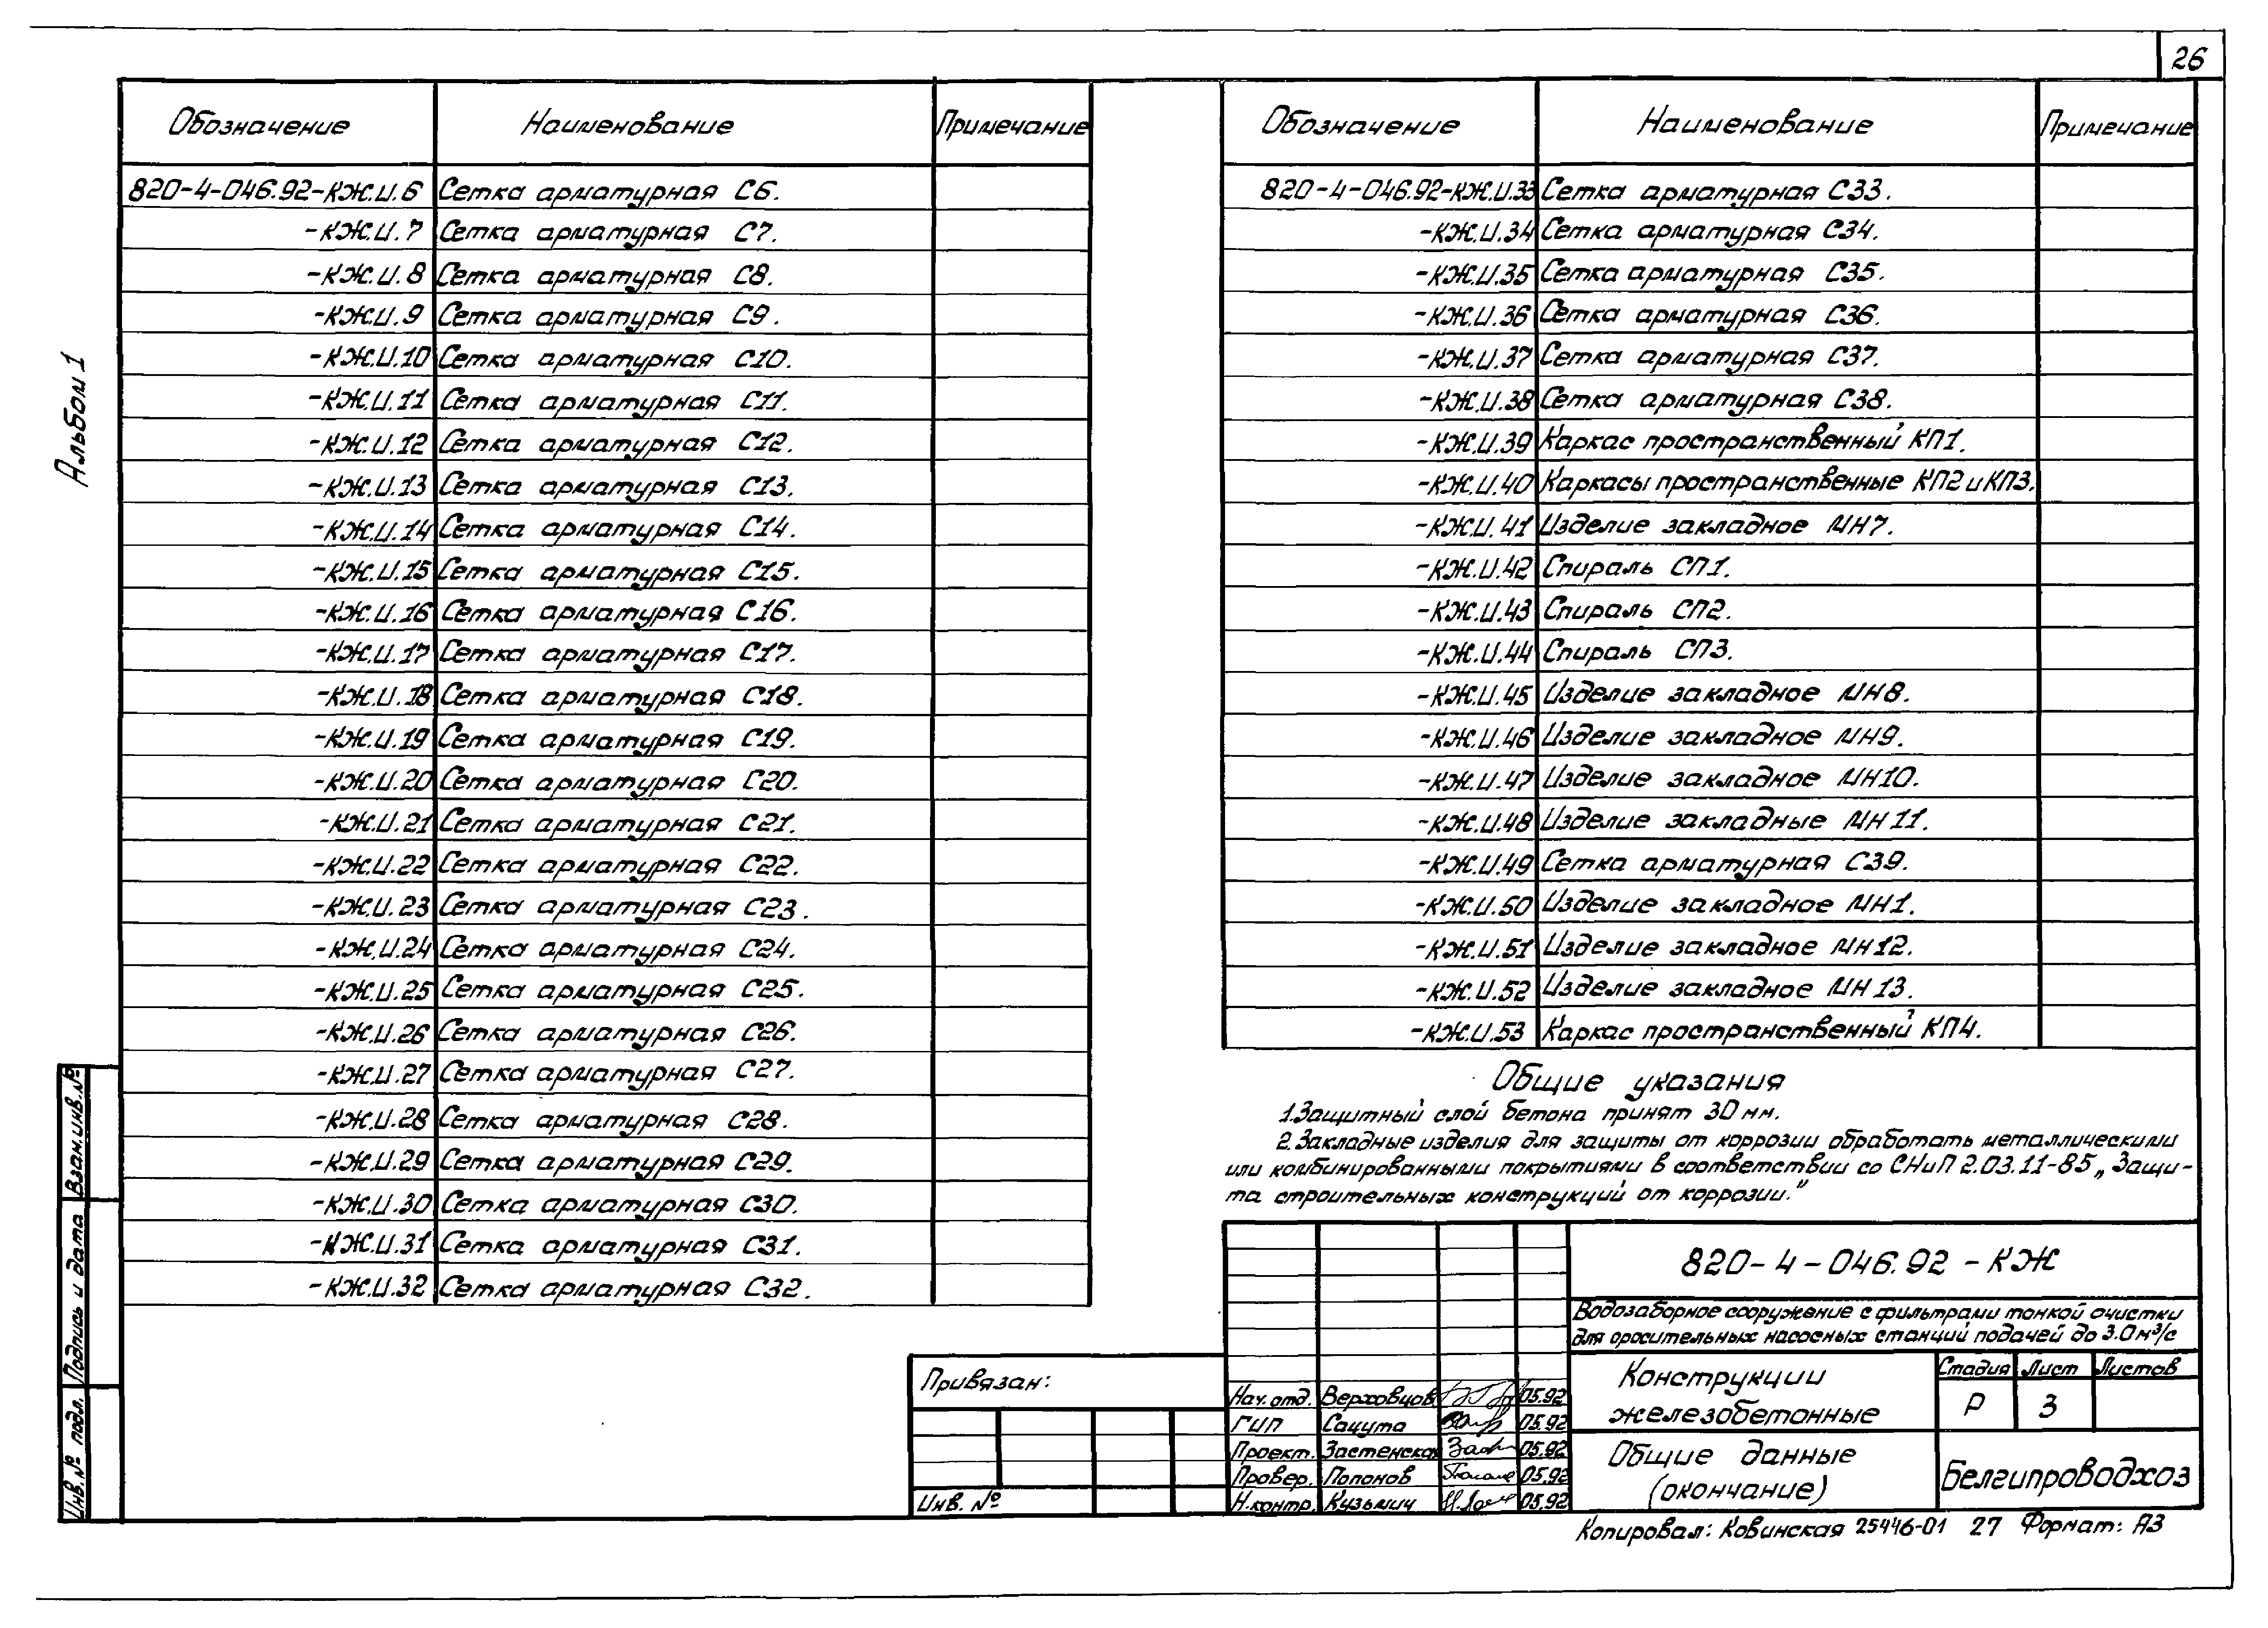 26
Альбом 1
Обозначение Наименование Примечание
820-4-046.92-КЖ.И.6 Сетка арматурная С6.
-КЖ.И.7 Сетка арматурная С7.
-КЖ.И.8 Сетка арматурная С8.
-КЖ.И.9 Сетка арматурная С9.
-КЖ.И.10 Сетка арматурная С10.
-КЖ.И.11 Сетка арматурная С11.
-КЖ.И.12 Сетка арматурная С12.
-КЖ.И.13 Сетка арматурная С13.
-КЖ.И.14 Сетка арматурная С14.
-КЖ.И.15 Сетка арматурная С15.
-КЖ.И.16 Сетка арматурная С16.
-КЖ.И.17 Сетка арматурная С17.
-КЖ.И.18 Сетка арматурная С18.
-КЖ.И.19 Сетка арматурная С19.
-КЖ.И.20 Сетка арматурная С20.
-КЖ.И.21 Сетка арматурная С21.
-КЖ.И.22 Сетка арматурная С22.
-КЖ.И.23 Сетка арматурная С23.
-КЖ.И.24 Сетка арматурная С24.
-КЖ.И.25 Сетка арматурная С25.
-КЖ.И.26 Сетка арматурная С26.
-КЖ.И.27 Сетка арматурная С27.
-КЖ.И.28 Сетка арматурная С28.
-КЖ.И.29 Сетка арматурная С29.
-КЖ.И.30 Сетка арматурная С30.
-КЖ.И.31 Сетка арматурная С31.
-КЖ.И.32 Сетка арматурная С32.
Обозначение Наименование Примечание
820-4-046.92-КЖ.И.33 Сетка арматурная С33.
-КЖ.И.34 Сетка арматурная С34.
-КЖ.И.35 Сетка арматурная С35.
-КЖ.И.36 Сетка арматурная С36.
-КЖ.И.37 Сетка арматурная С37.
-КЖ.И.38 Сетка арматурная С38.
-КЖ.И.39 Каркас пространственный КП1.
-КЖ.И.40 Каркасы пространственные КП2 и КП3.
-КЖ.И.41 Изделие закладное МН7.
-КЖ.И.42 Спираль СП1.
-КЖ.И.43 Спираль СП2.
-КЖ.И.44 Спираль СП3.
-КЖ.И.45 Изделие закладное МН8.
-КЖ.И.46 Изделие закладное МН9.
-КЖ.И.47 Изделие закладное МН10.
-КЖ.И.48 Изделие закладные МН11.
-КЖ.И.49 Сетка арматурная С39.
-КЖ.И.50 Изделие закладное МН1.
-КЖ.И.51 Изделие закладное МН12.
-КЖ.И.52 Изделие закладное МН13.
-КЖ.И.53 Каркас пространственный КП4.
Общие указания
1. Защитный слой бетона принят 30 мм.
2. Закладные изделия для защиты от коррозии обработать металлическими
или комбинированными покрытиями в соответствии со СНиП 2.03.11-85 „Защи-
та строительных конструкций от коррозии."
820-4-046.92-КЖ
Водозаборное сооружение с фильтрами тонкой очистки
для оросительных насосных станций подачей до 3.0 м³/с
Конструкции
железобетонные
Стадия Лист Листов
Р 3
Общие данные
(окончание)
Белгипроводхоз
Нач.отд. Верховцов 05.92
ГИП Сацута 05.92
Проект. Застенская 05.92
Провер. Попонов 05.92
Н.контр. Кузьмич 05.92
Привязан:
Инв. №
Взам.инв.№
Подпись и дата
Инв.№ подл.
Копировал: Ковинская 25446-01 27 Формат: А3